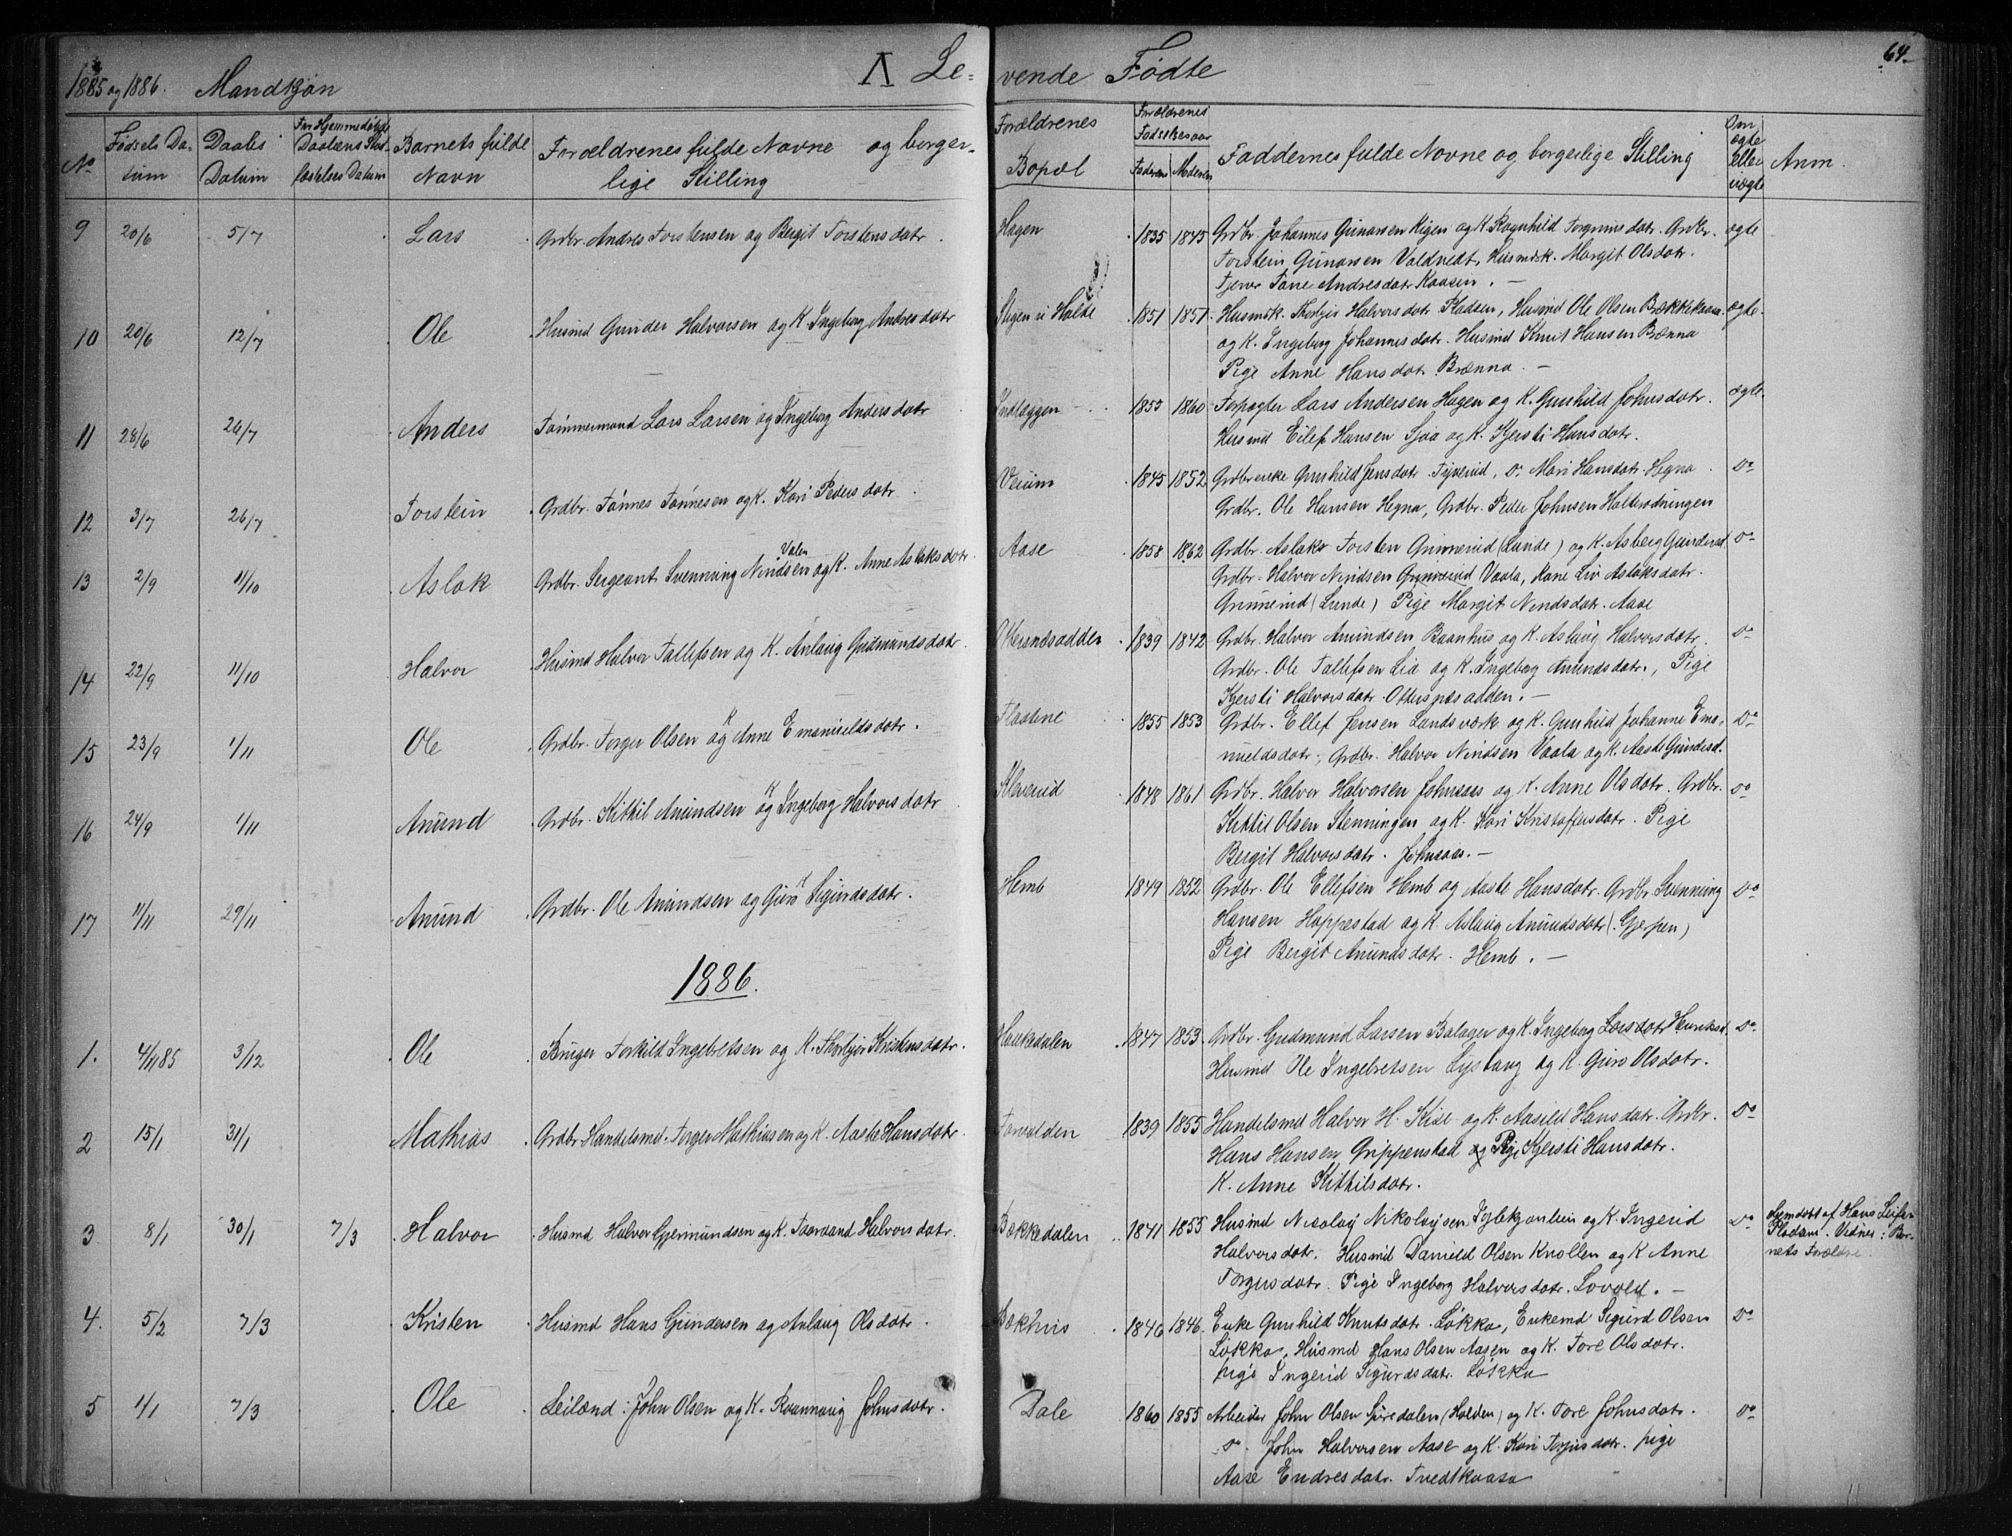 1885 og 1886. Mandkjøn Λ Le- vende Fødte 64.
No
Fødsels Da-
tum
Daabs
Datum
For Hjemmedøbte
Daabens Stad-
fæstelses Datum
Barnets fulde
Navn
Forældrenes fulde Navne og borger-
lige Stilling
Forældrenes
Bopæl
Forældrenes
Fødselsaar
Faderens Moderens
Faddernes fulde Navne og borgerlige Stilling
Om
ægte
eller
uægte
Anm.
9 20/6 5/7 Lars Grdbr. Andres Torstensen og Bergit Torstensdatr. Hagen 1835 1845 Grdbr. Johannes Gunarsen Rigen og K. Ragnhild Torgrimsdatr. Grdbr. ægte
Torstein Gunarsen Valdvedt, Husmdsk. Margit Olsdatr.
Tjener Tone Andresdatr Kaasen. —
10 20/6 12/7 Ole Husmd Gunder Halvorsen og K. Ingeborg Andresdatr Stigen u Holte 1851 1851 Husmdsk. Thorbjør Halvorsdatr Kaasen, Husmd Ole Olsen Bækkekaasa ægte.
og K. Ingeborg Johannesdatr. Husmd Knut Hansen Brænna
Pige Anne Hansdatr Brænna. —
11 28/6 26/7 Anders Tømmermand Lars Larsen og Ingeborg Andersdatr Indlæggen 1855 1860 Forpagter Lars Andersen Hagen og K. Gunhild Johnsdatr. ægte
Husmd Eilef Hansen Sjaa og K. Kjersti Hansdatr.
12 3/7 26/7 Torstein Grdbr. Tønnes Tønnesen og K. Kari Pedersdatr. Veium 1845 1852 Grdbrenke Gunhild Jensdatr. , Do Mari Hansdatr. Hegna Do
Grdbr. Ole Hansen Hegna, Grdbr. Peder Johnsen Holterødningen
13 2/9 11/10 Aslak Grdbr. Sergeant Svenning Niridsen Valen og K. Anne Aslaksdatr. Aase 1858 1862 Grdbr. Aslak Torsten Grinerud (Lunde) og K. Asberg Gundersd. Do
Grdbr. Halvor Niridsen Vaala, Kone Liv Aslaksdatr.
Grinerud (Lunde) Pige Margit Niridsdatr. Aase
14 22/9 11/10 Halvor Husmd Halvor Tallefsen og K. Anlaug Gudmundsdatr. 1839 1842 Grdbr. Halvor Amundsen Baanhus og K. Aslaug Halvorsdatr. Do
Grdbr. Ole Tallefsen Lia og K. Ingeborg Amundsdatr., Pige
Kjersti Halvorsdatr. Ottersnæsodden. —
15 23/9 1/11 Ole Grdbr. Torger Olsen og K Anne Emanuelsdatr. Flaatene 1855 1853 Grdbr. Ellef Jensen Landsværk og K. Gunhild Johanne Ema- Do
nuelsdatr., Grdbr. Halvor Niridsen Vaala og K. Aaste Gundersd.
16 24/9 1/11 Anund Grdbr. Kittil Anundsen og K Ingeborg Halvorsdatr Kleverud 1848 1861 Grdbr. Halvor Halvorsen Johnsaas og K. Anne Olsdatr. Grdbr. Do
Kittil Olsen Stenningen og K. Kari Kristoffersdatr. Pige
Bergit Halvorsdatr. Johnsaas. —
17 11/11 29/11 Anund Grdbr. Ole Anundsen og K Guro Sigurdsdatr. Hemb 1849 1852 Grdbr. Ole Ellefsen Hemb og Aaste Hansdatr. Grdbr. Svenning Do
Hansen Hoppestad og K. Aslaug Anundsdatr (Gjerpen)
Pige Bergit Anundsdatr. Hemb. —
1886.
1. 4/11 85 3/12 Ole Bruger Torkild Ingebretsen og K. Thorbjør Kristensdatr. Haukedalen 1847 1853 Grdbr. Gudmund Larsen Balager og K. Ingeborg Larsdatr Do
Husmd Ole Ingebretsen Lystaug og K. Guro Olsdatr.
2 15/1 31/1 Mathias Grdbr. Handelsmd. Torger Mathiasen og K. Aaste Hansdatr. Forvalden 1839 1855 Handelsmd Halvor H. Kise og K. Aasild Hansdatr. Grdbr. Do
Hans Hansen Grippenstad og Pige Kjersti Hansdatr.
K. Anne Kittilsdatr.
3 8/1 30/1 7/3 Halvor Husmd Halvor Gjermundsen og K. Taaraand Halvorsdatr. Bækkedalen 1841 1855 Husmd Nicolay Nikolaysen og K. Ingerid Do
Halvorsdatr. Husmd Danield Olsen Knollen og K Anne
Torgusdatr. Pige Ingeborg Halvorsdatr. Lovold. —
hjemdøbt af Hans Leifsen
Pladsen. Vidner: Bar-
nets Forældre.
4. 5/2 7/3 Kristen Husmd Hans Gundersen og Anlaug Olsdatr. Bækhus 1846 1846. Enke Gunhild Knutsdatr. Løkka, Enkemd Sigurd Olsen Do
Løkka, Husmd Hans Olsen Aasen og K. Tore Olsdatr.
pige Ingerid Sigurdsdatr. Løkka
5 4/1 7/3 Ole Leilænd: John Olsen og K. Raannaug Johnsdatr. Dale 1860 1855 Arbeider John Olsen Spiredalen (Holden) og K. Tore Johnsdatr. Do
Do. John Halvorsen Aase og K. Kari Terjusdatr. pige
Aase Endresdatr. Tvedtkaasa